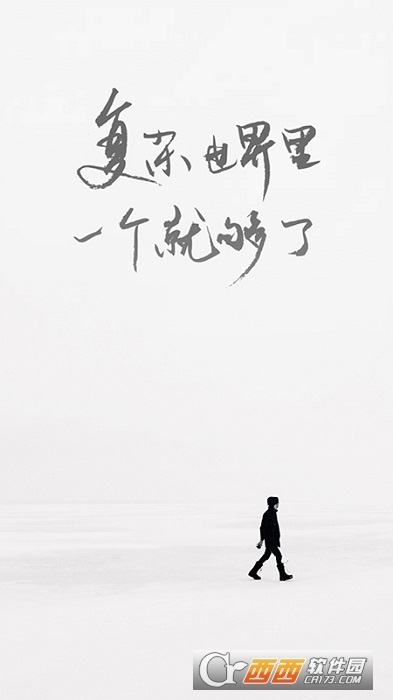 复杂世界里
一个就够了
C 西西软件园
CR173.COM